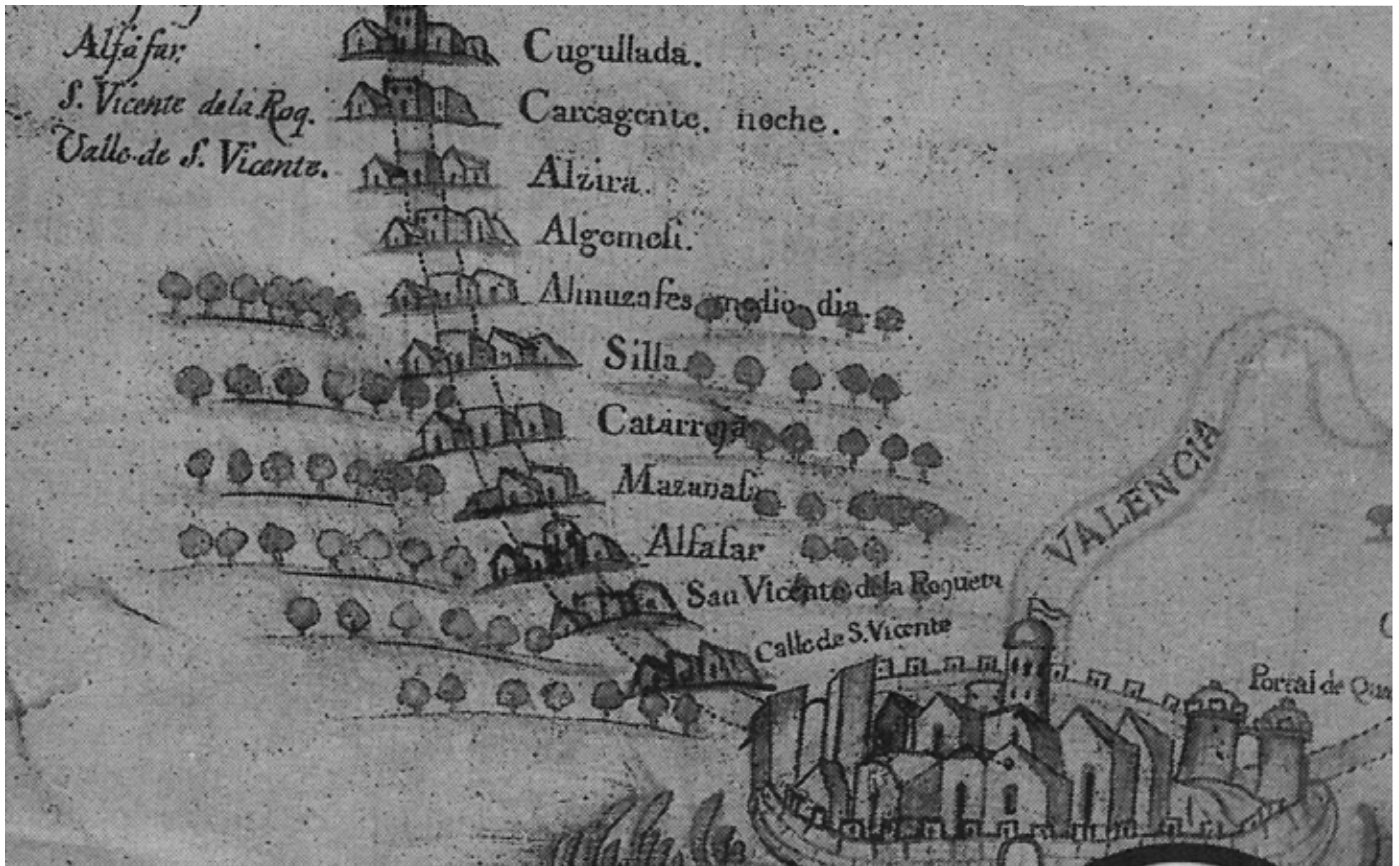 Alfafar.
S. Vicente dela Roq.
Valle de S. Vicente.
Cugullada.
Carcagente. noche.
Alzira.
Algemesi.
Almuzafes medio dia.
Silla.
Catarroja
Mazanasa
Alfafar
San Vicente de la Roqueta
Calle de S. Vicente
VALENCIA
Portal de